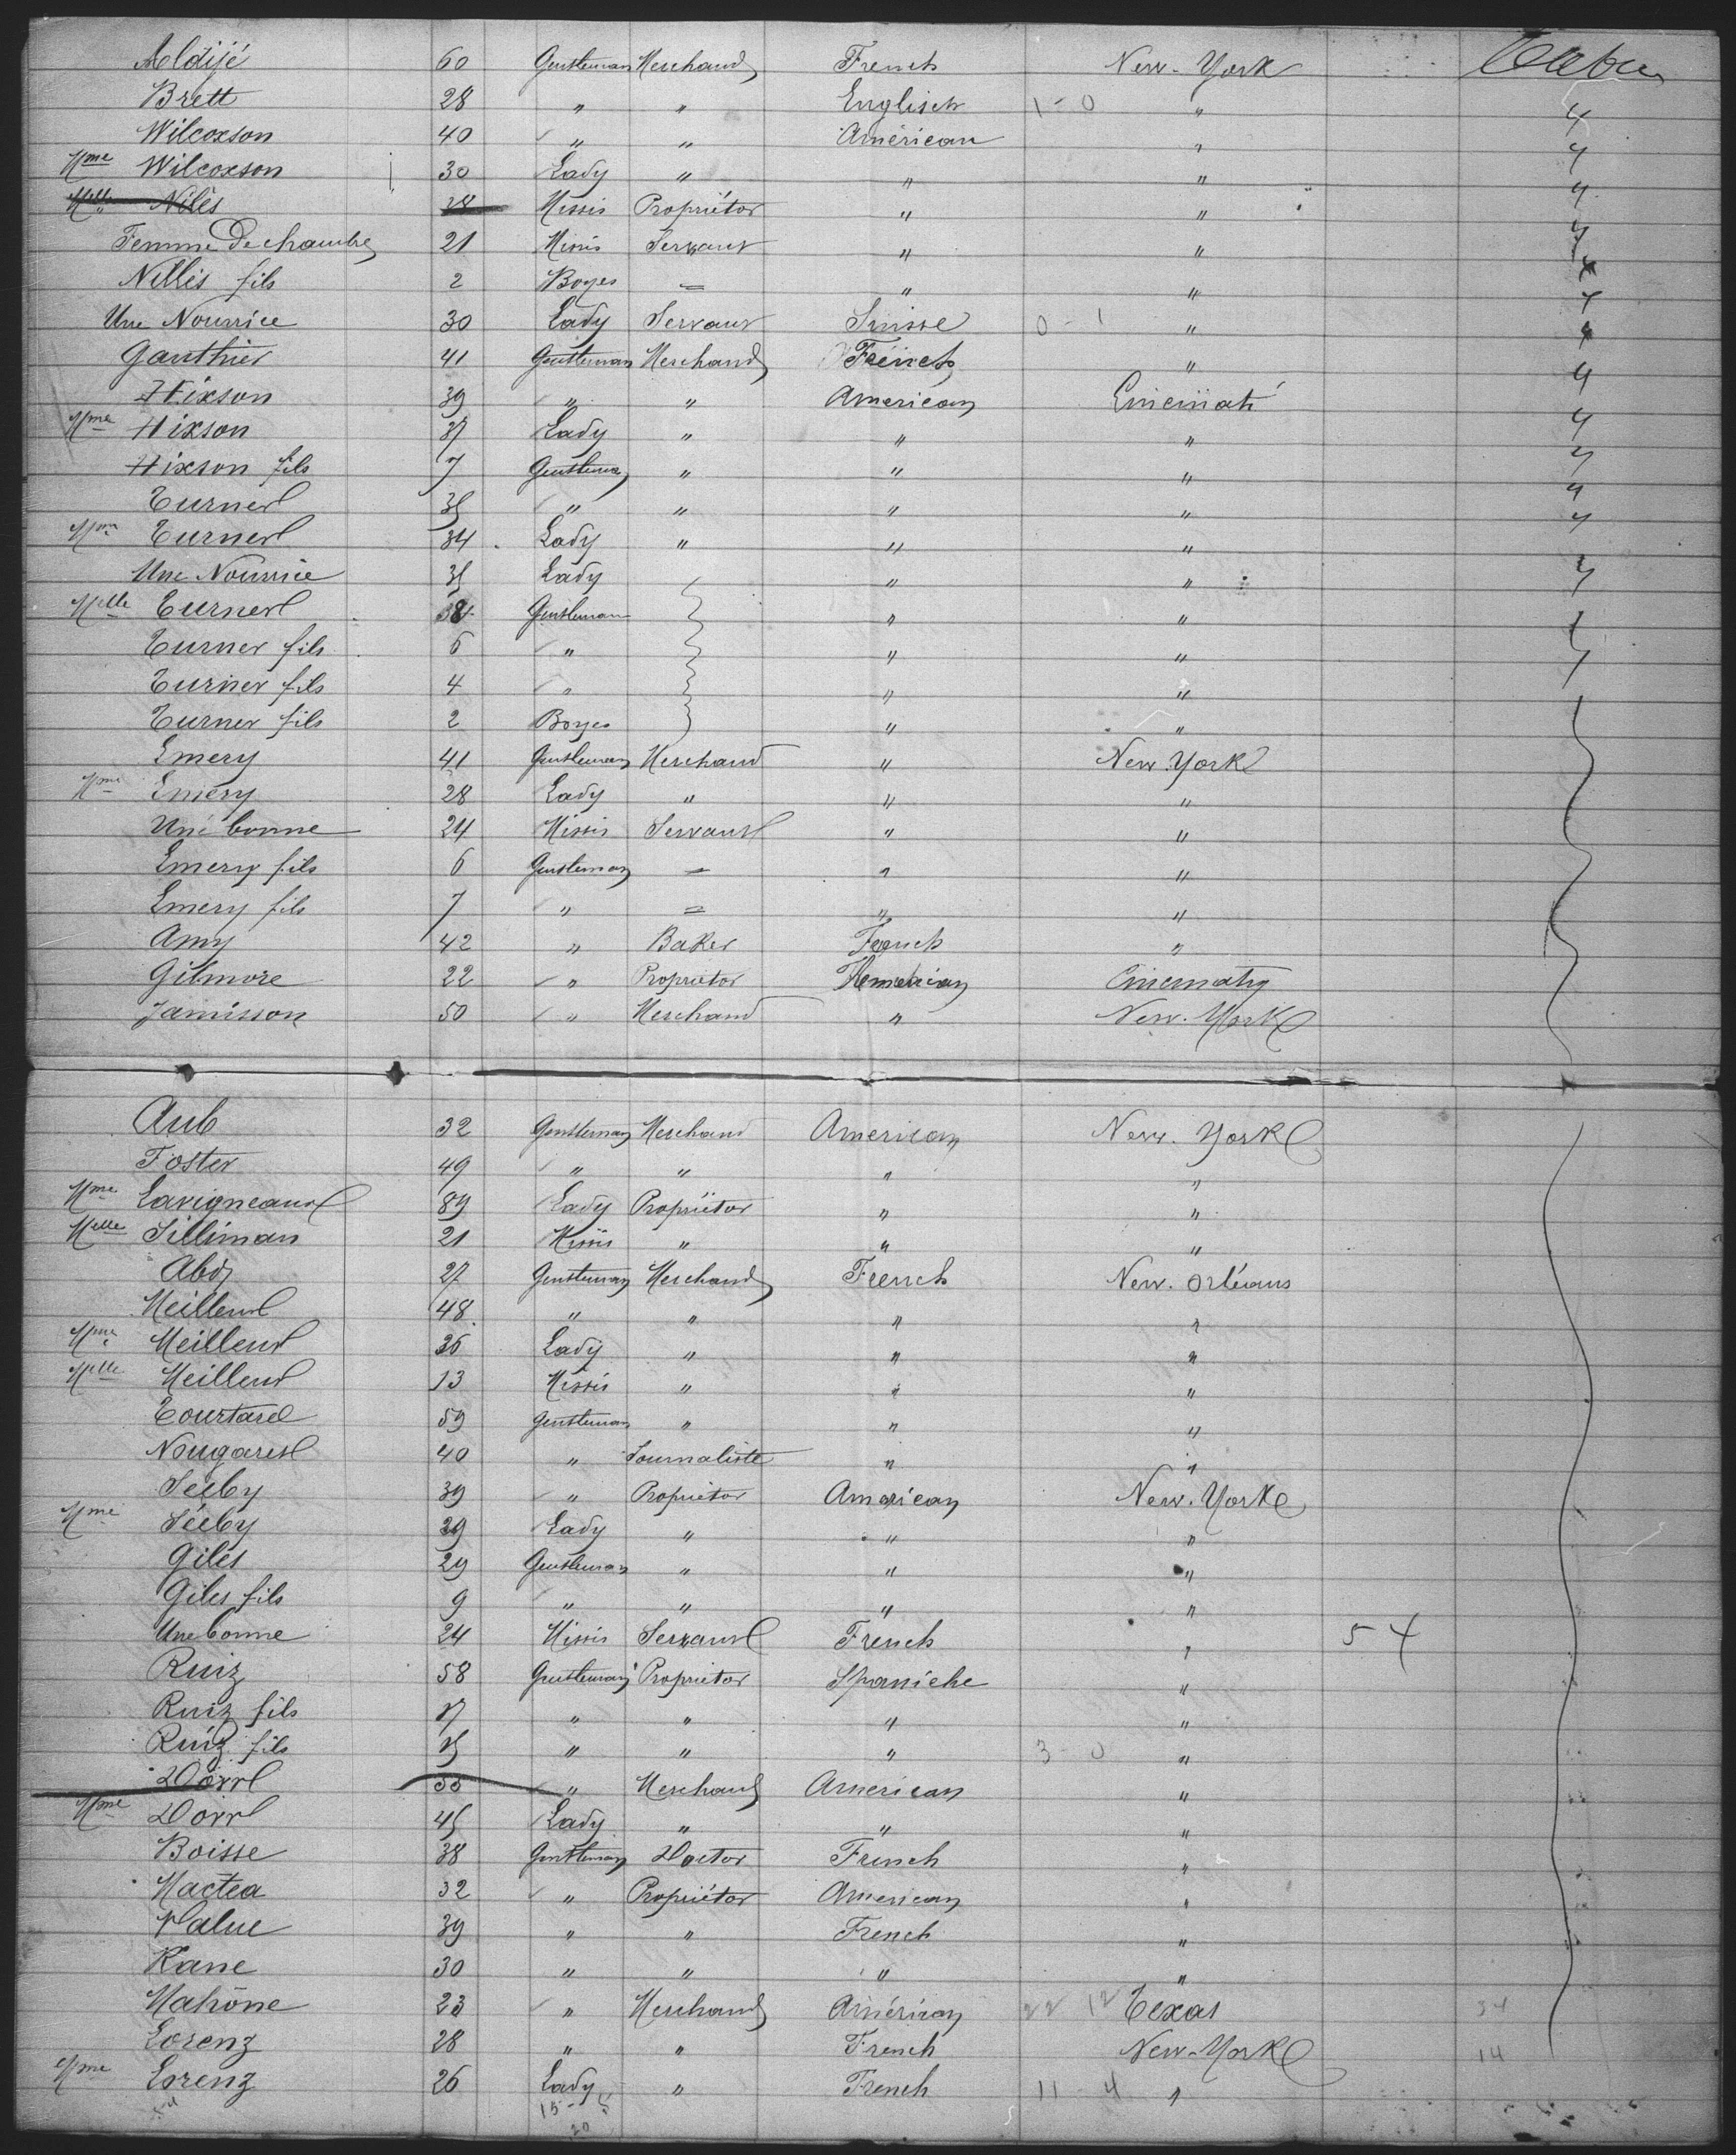 Aldijé 60 Gentleman Merchand French New-York
Brett 28 " " Englisch 1-0 " 4
Wilcoxson 40 " " Américan " 4
Mme Wilcoxson 30 Lady " " " 4
Melle Nilès 28 Missis Propriétor " " 4
Femme De chambre 21 Missis Servant " "
Nellis fils 2 Boyes = " "
Une Nourrice 30 Lady Servant Suisse 0-1 "
Gauthier 41 Gentleman Merchand French " 4
Hixson 39 " " American Cincinati 4
Mme Hixson 37 Lady " " " 4
Hixson fils 7 Gentleman " " " 4
Turner 35 " " " " 4
Mme Turner 34 Lady " " " 4
Une Nourrice 35 Lady " "
Melle Turner 8 Gentleman " "
Turner fils 6 " " "
Turner fils 4 " " "
Turner fils 2 Boyes " "
Emery 41 Gentleman Merchand " New York
Mme Emery 28 Lady " " "
Une bonne 24 Missis Servant " "
Emery fils 6 Gentleman = " "
Emery fils 7 " = " "
Amy 42 " Baker French "
Gilmore 22 " Proprietor Américan Cincinnaty
Jamisson 50 " Merchand " New-York
Aub 32 Gentleman Merchand American New-York
Foster 49 " " " "
Mme Lavigneaud 89 Lady Propriétor " "
Melle Silliman 21 Missis " " "
Abd 27 Gentleman Merchand French New. Orléans
Meilleur 48 " " " "
Mme Meilleur 36 Lady " " "
Melle Meilleur 13 Missis " " "
Tourtarel 59 Gentleman " " "
Nougaret 40 " Journaliste " "
Seeby 39 " Proprietor American New-York
Mme Seeby 29 Lady " " "
Giles 29 Gentleman " " "
Giles fils 9 " " " "
Une bonne 24 Missis Servant French " 54
Ruiz 58 Gentleman Proprietor Spaniche "
Ruiz fils 17 " " " "
Ruiz fils 15 " " " 3-0 "
Dorr 55 " Merchand American "
Mme Dorr 45 Lady " " "
Boisse 38 Gentleman Doctor French "
Mactea 32 " Propriétor American "
Value 39 " " French "
Kane 30 " " " "
Mahone 23 " Merchand Américan 22 12 Texas 34
Lorenz 28 " " French New-York 14
Mme Lorenz 26 Lady " French 11-4 "
15-5
20